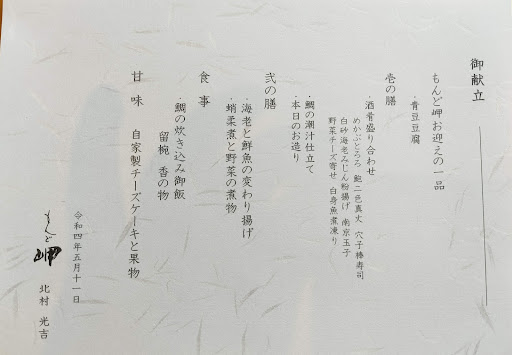 御献立
もんど岬お迎えの一品
・青豆豆腐
壱の膳
・酒肴盛り合わせ
めかぶとろろ 鮑二色真丈 穴子棒寿司
白砂海老みじん粉揚げ 南京玉子
野菜チーズ寄せ 白身魚煮凍り
・鯛の潮汁仕立て
・本日のお造り
弐の膳
・海老と鮮魚の変わり揚げ
・蛸柔煮と野菜の煮物
食事
・鯛の炊き込み御飯
留椀 香の物
甘味 自家製チーズケーキと果物
令和四年五月十一日
もんど岬 北村 光吉